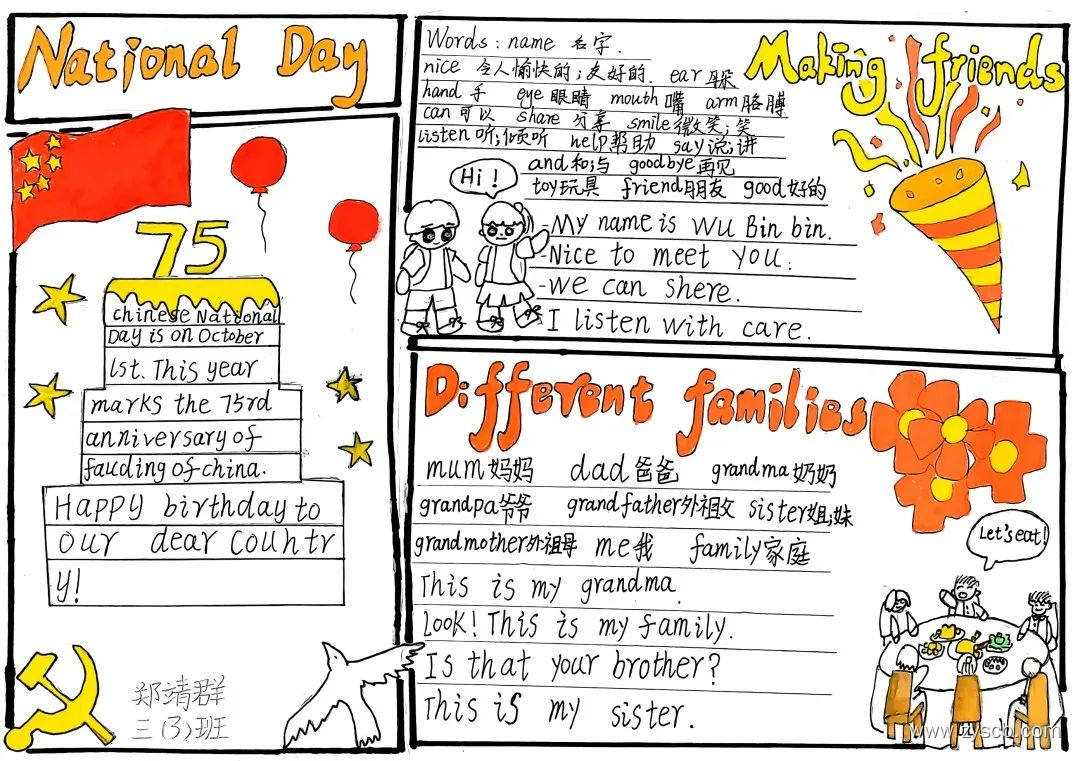 National Day
75
chinese National
Day is on October
1st. This year
marks the 75rd
anniversary of
fauding of china.
Happy birthday to
our dear countr
y!
郑靖群
三(3)班
Making friends
Words: name 名字.
nice 令人愉快的;友好的. ear 耳朵
hand 手 eye 眼睛 mouth 嘴 arm 胳膊
can 可以 share 分享 smile 微笑;笑
Listen 听;倾听 help 帮助 say 说;讲
and 和;与 goodbye 再见
toy 玩具 friend 朋友 good 好的
Hi!
My name is Wu Bin bin.
Nice to meet you.
-We can shere.
I listen with care.
Different families
mum 妈妈 dad 爸爸 grandma 奶奶
grandpa 爷爷 grandfather 外祖父 sister 姐;妹
grandmother 外祖母 me 我 family 家庭
This is my grandma.
Look! This is my family.
Is that your brother?
This is my sister.
Let's eat!